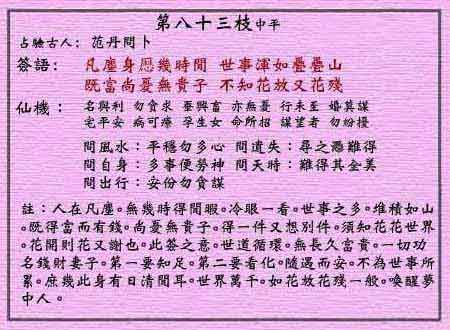 第八十三枝中平
占驗古人：范丹問卜
簽語：凡塵身愿幾時閒 世事渾如疊疊山
既富尚憂無貴子 不知花放又花殘
仙機：名與利 勿貪求 蚕興畜 亦無憂 行未至 婚莫謀
宅平安 病可瘳 孕生女 命所招 謀望者 勿紛擾
問風水：平穩勿多心 問遺失：尋之恐難得
問自身：多事便勞神 問天時：難得其全美
問出行：安份勿貪謀
註：人在凡塵。無幾時得閒暇。冷眼一看。世事之多。堆積如山
。既得富而有錢。尚憂無貴子。得一件又想別件。須知花花世界
。花開則花又謝也。此簽之意。世道循環。無長久富貴。一切功
名錢財妻子。第一要知足。第二要看化。隨遇而安。不為世事所
累。庶幾此身有日清閒耳。世界萬千。如花放花殘一般。喚醒夢
中人。